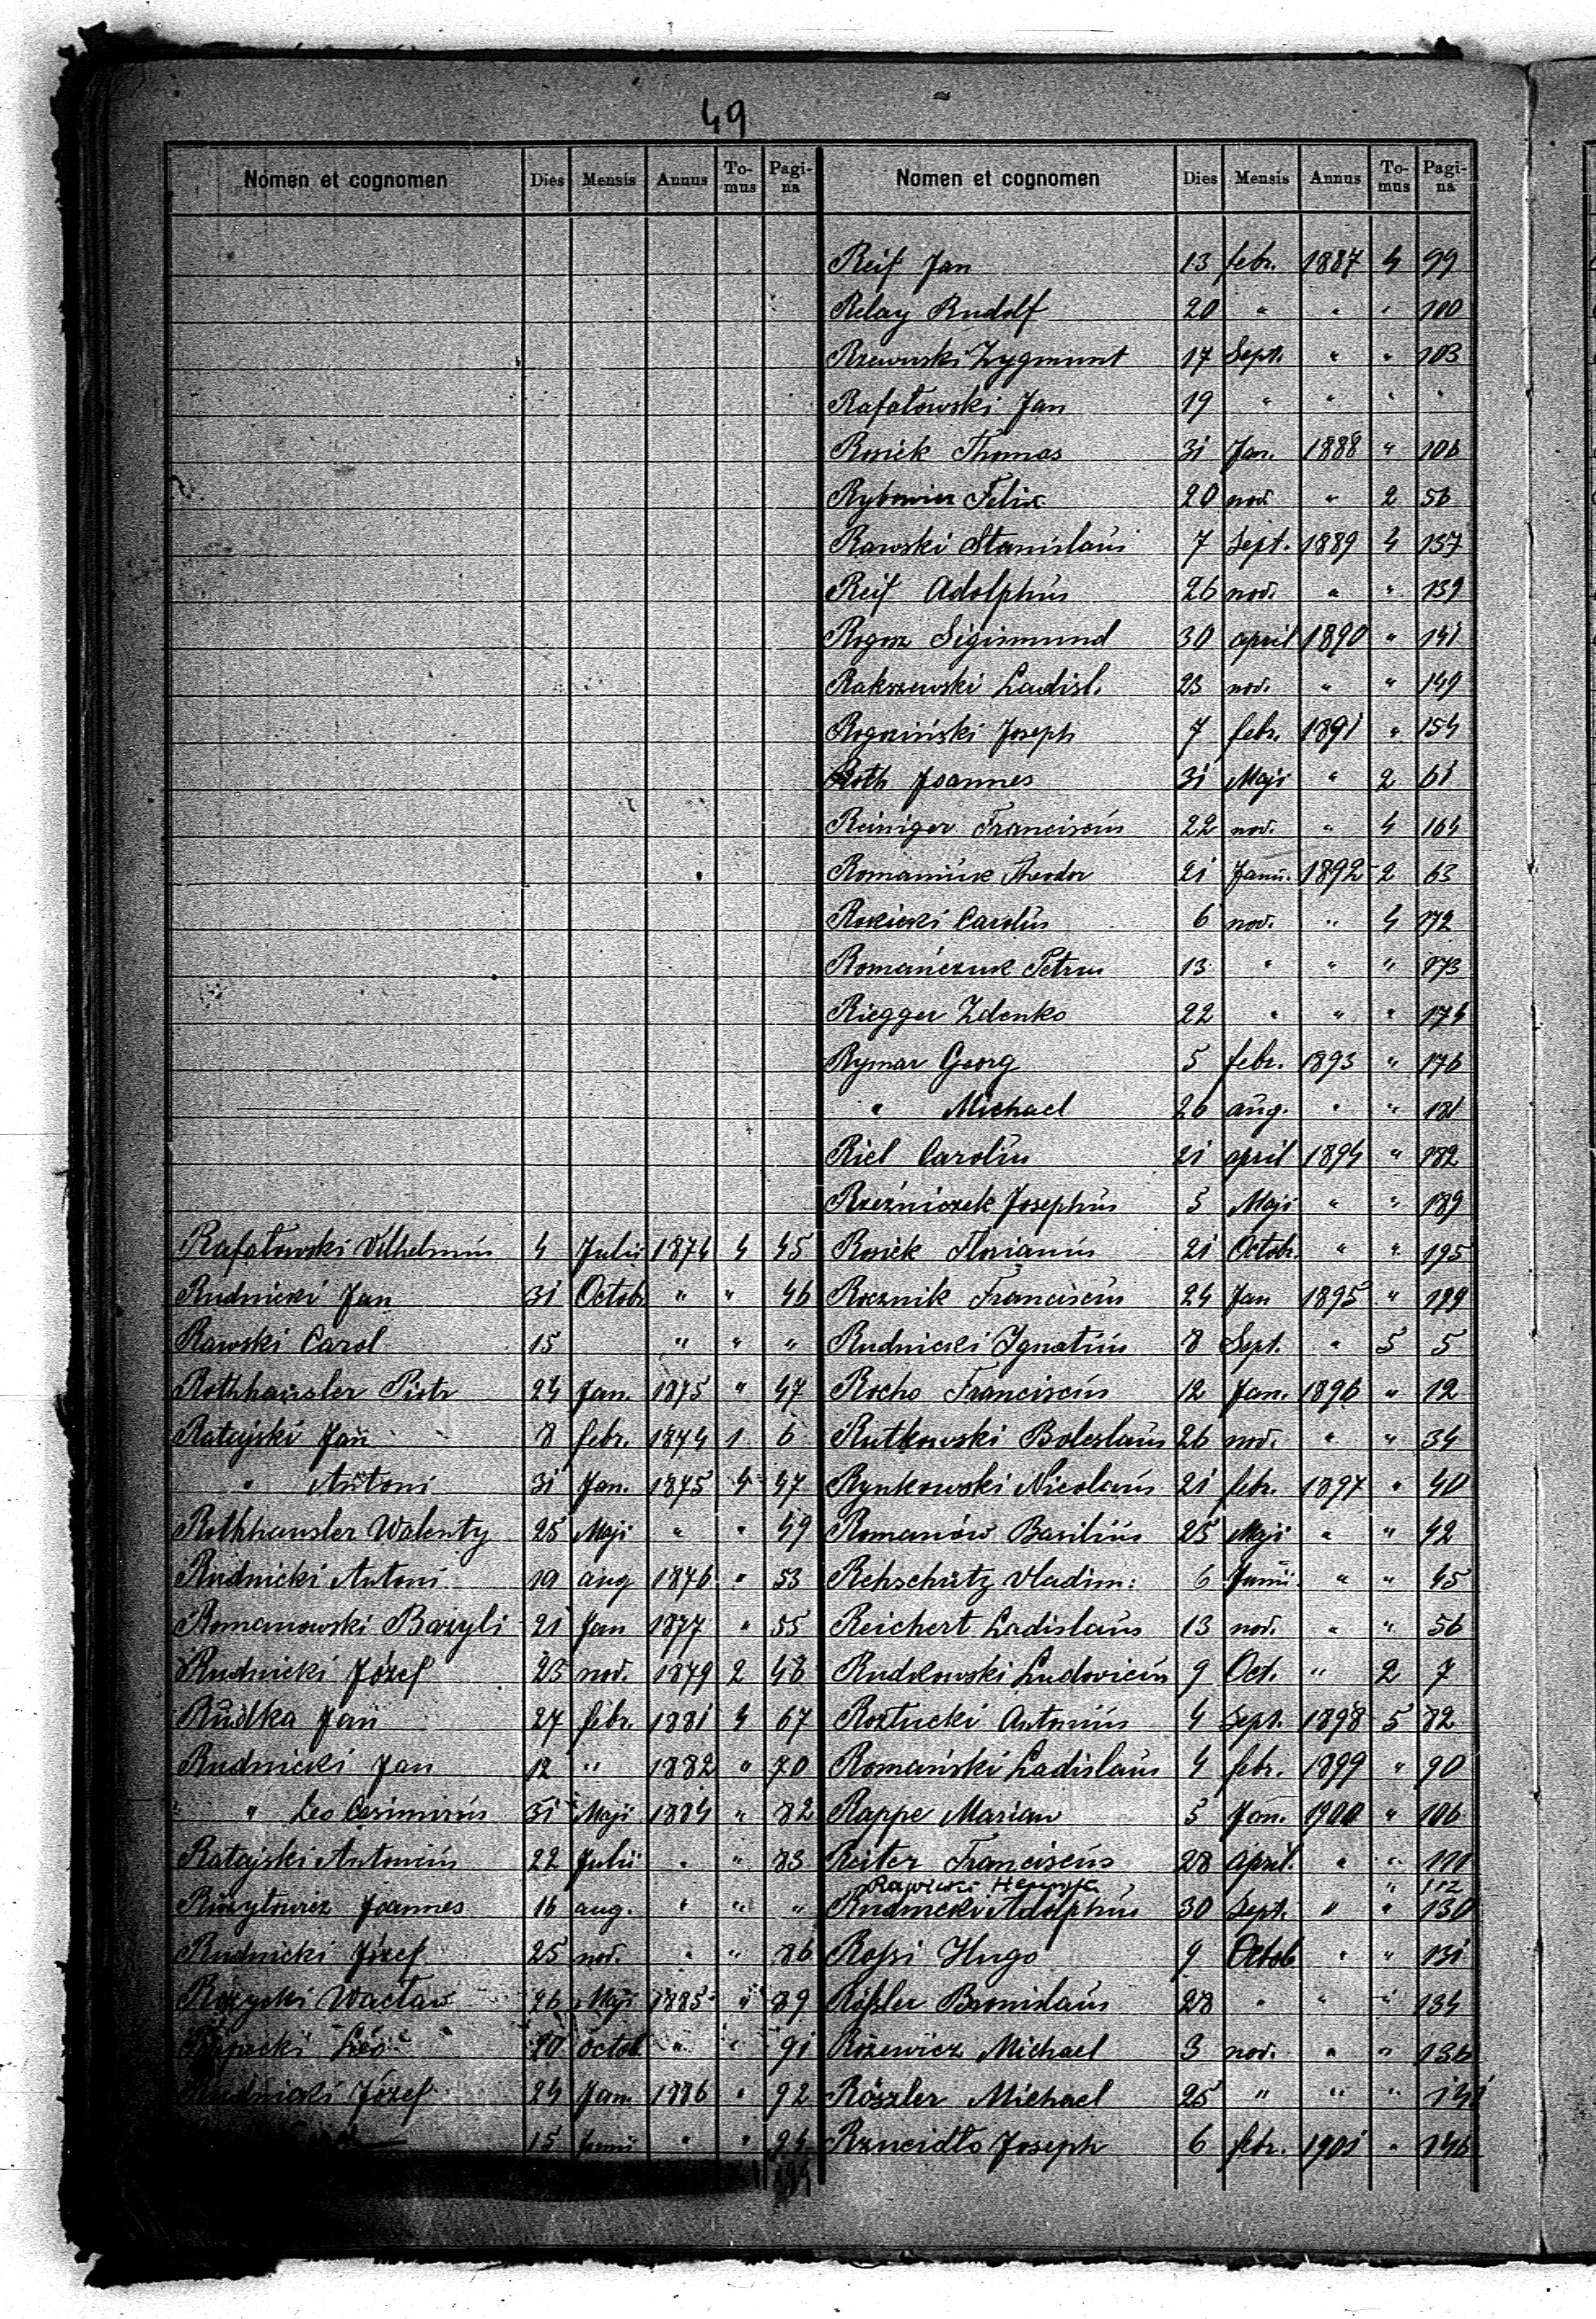 49
Nomen et cognomen Dies Mensis Annus To-mus Pagi-na
Rafałowski Vilhelmus 4 Julii 1874 4 45
Rudnicki Jan 31 Octobr " " 46
Rawski Carol 15 " " "
Rothhausler Piotr 24 Jan. 1875 " 47
Ratajski Jan 8 febr. 1874 1 6
" Antoni 31 Jan. 1875 4 47
Rothhausler Walenty 25 Maji " " 49
Rudnicki Antoni 19 aug 1876 " 53
Romanowski Bazyli 21 Jan 1877 " 55
Rudnicki Józef 23 nov. 1879 2 48
Rudka Jan 27 febr. 1881 4 67
Rudnicki Jan 12 " 1882 " 70
" Leo Casimirus 31 Maji 1884 " 82
Ratajski Antonius 22 Julii " " 83
Joannes 16 aug. " " "
Rudnicki Józef 25 nov. " " 86
Różycki Wacław 26 Maji 1885 " 89
Leo 20 octob. " " 91
Rudnicki Józef 24 Jan. 1886 " 92
15 Junii " " 94
Nomen et cognomen Dies Mensis Annus To-mus Pagi-na
Reif Jan 13 febr. 1887 4 99
Relay Rudolf 20 " " " 100
Rzewuski Zygmunt 17 Sept. " " 103
Rafałowski Jan 19 " " " "
Rosiek Thomas 31 Jan. 1888 " 106
Rybowicz Felix 20 nov. " 2 56
Rawski Stanislaus 7 Sept. 1889 4 137
Reif Adolphus 26 nov. " " 139
Rogosz Sigismund 30 april 1890 " 141
Rakszewski Ladisl. 23 nov. " " 149
Rogoziński Joseph 7 febr. 1891 " 154
Roth Joannes 31 Maji " 2 61
Reiniger Franciscus 22 nov. " 4 164
Romaniuk Theodor 21 Janu. 1892 2 63
Rokicki Carolus 6 nov. " 4 172
Romańczuk Petrus 13 " " " 173
Riegger Zdenko 22 " " " 174
Rymar Georg 5 febr. 1893 " 176
" Michael 26 aug. " " 181
Riel Carolus 21 april 1894 " 182
Rzeźniczek Josephus 5 Maji " " 189
Rosiek Florianus 21 Octobr. " " 195
Rocznik Franciscus 24 Jan 1895 " 199
Rudnicki Ignatius 8 Sept. " 5 5
Rocho Franciscus 12 Jan. 1896 " 12
Rutkowski Boleslaus 26 nov. " " 34
Rynkowski Nicolaus 21 febr. 1897 " 40
Romanów Basilius 25 Maji " " 42
Rehschutz Vladim: 6 Junii " " 45
Reichert Ladislaus 13 nov. " " 56
Rudkowski Ludovicus 9 Oct. " 2 7
Roztucki Antonius 4 Sept. 1898 5 82
Romański Ladislaus 4 febr. 1899 " 90
Rappe Marian 5 Jan. 1900 " 106
Reiter Franciscus 28 April. " " 111
" 112
Rudnicki Adolphus 30 Sept. " " 130
Rossi Hugo 9 Octob " " 131
Rößler Bronislaus 28 " " " 134
Rożewicz Michael 3 nov. " " 136
Röszler Michael 25 " " " 141
Rzneidło Joseph 6 febr. 1901 " 146